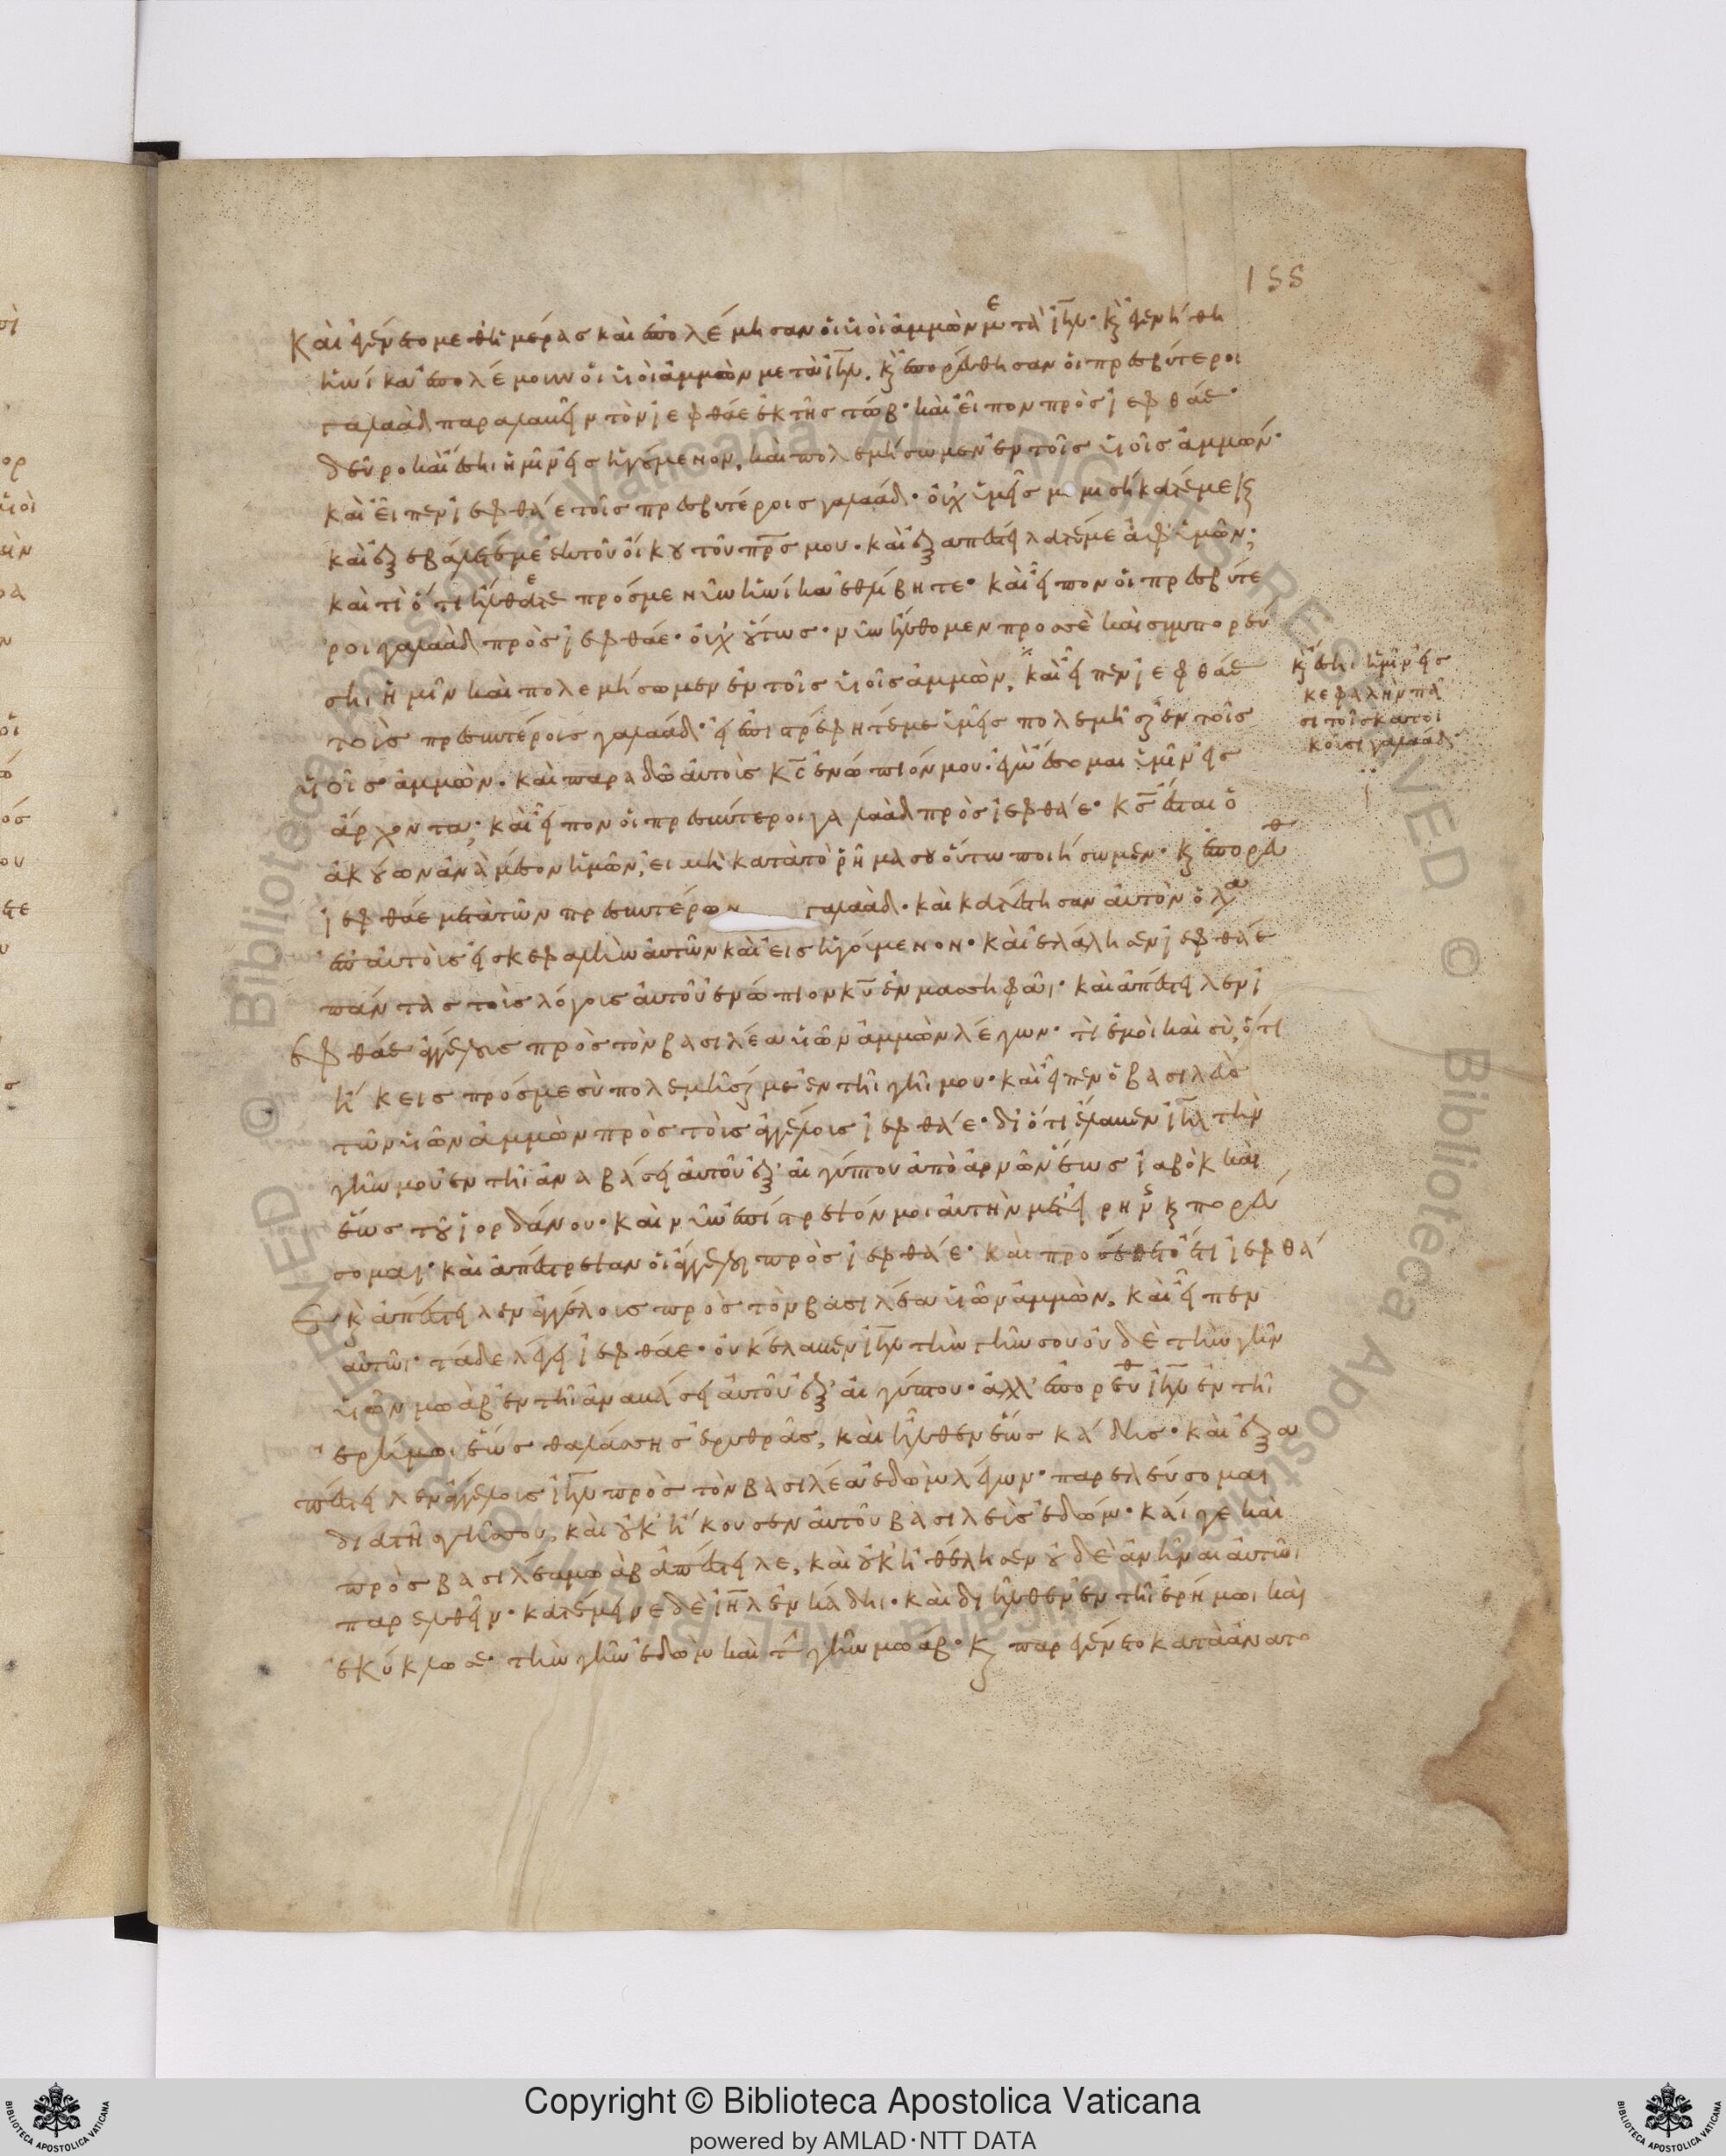 155
Καὶ ἐγένετο μεθ' ἡμέρας καὶ ἐπολέμησαν οἱ υἱοὶ ἀμμὼν μετὰ ιηλ· κ ἐγενήθη
ἡνίκα ἐπολέμουν οἱ υἱοὶ ἀμμὼν μετὰ ιηλ. κ ἐπορεύθησαν οἱ πρεσβύτεροι
γαλαὰδ παραλαβεῖν τὸν ιεφθάε ἐκ τῆς τώβ· καὶ εἶπον πρὸς ιεφθάε·
δεῦρο καὶ ἔση ἡμῖν εἰς ἡγούμενον, καὶ πολεμήσωμεν ἐν τοῖς υἱοῖς ἀμμών·
καὶ εἶπεν ιεφθάε τοῖς πρεσβυτέροις γαλαάδ· οὐχ ὑμεῖς μεμισήκατέ με κ
καὶ ἐξεβάλετέ με ἐκ τοῦ οἴκου τοῦ πρς μου· καὶ ἐξαπεστείλατέ με ἀφ' ὑμῶν;
καὶ τί ὅτι ἤλθατε πρός με νῦν ἡνίκα ἐθλίβητε· καὶ εἶπον οἱ πρεσβύτε
ροι γαλαὰδ πρὸς ιεφθάε· οὐχ οὕτως· νῦν ἤλθομεν προσσὲ καὶ συμπορεύ
ση ἡμῖν καὶ πολεμήσωμεν ἐν τοῖς υἱοῖς ἀμμὼν, καὶ εἶπεν ιεφθάε
τοῖς πρεσβυτέροις γαλαάδ· εἰ ἐπιστρέφητέ με ὑμεῖς πολεμῆσαι ἐν τοῖς
υἱοῖς ἀμμὼν. καὶ παραδῶ αὐτοὺς κς ἐνώπιόν μου· ἐγὼ ἔσομαι ὑμῖν εἰς
ἄρχοντα; καὶ εἶπον οἱ πρεσβύτεροι γαλαὰδ πρὸς ιεφθάε· κς ἔσται ὁ
ἀκούων ἀνὰ μέσον ἡμῶν, εἰ μὴ κατὰ τὸ ῥῆμά σου οὕτω ποιήσωμεν· κ ἐπορεύθ
ιεφθάε μετὰ τῶν πρεσβυτέρων γαλαάδ. καὶ κατέστησαν αὐτὸν ὁ λα
ἐπ' αὐτοὺς εἰς κεφαλὴν αὐτῶν καὶ εἰς ἡγούμενον· καὶ ἐλάλησεν ιεφθάε
πάντας τοὺς λόγους αὐτοῦ ἐνώπιον κυ ἐν μασσηφᾶ· καὶ ἀπέστειλεν ι
εφθάε ἀγγέλους πρὸς τὸν βασιλέα υἱῶν ἀμμὼν λέγων· τί ἐμοὶ καὶ σὺ, ὅτι
ἥκεις πρός με σὺ πολεμῆσαί με ἐν τῆι γῆι μου· καὶ εἶπεν ὁ βασιλεὺς
τῶν υἱῶν ἀμμὼν πρὸς τοὺς ἀγγέλους ιεφθάε· διότι ἔλαβεν ιηλ τὴν
γῆν μου ἐν τῆι ἀναβάσει αὐτοῦ ἐξ αἰγύπτου ἀπὸ ἀρνῶν ἕως ιαβὸκ καὶ
ἕως τοῦ ιορδάνου· καὶ νῦν ἐπίστρεψόν μοι αὐτὴν μετ' εἰρήν κ πορεύ
σομαι· καὶ ἀπέστρεψαν οἱ ἄγγελοι πρὸς ιεφθάε· καὶ προσέθετο ἔτι ιεφθά
ε κ ἀπέστειλεν ἀγγέλους πρὸς τὸν βασιλέα υἱῶν ἀμμὼν. καὶ εἶπεν
αὐτῶι· τάδε λέγει ιεφθάε· οὐκ ἔλαβεν ιηλ τὴν γῆν σου οὐδὲ τὴν γῆν
υἱῶν μωὰβ ἐν τῆι ἀναβάσει αὐτοῦ ἐξ αἰγύπτου· ἀλλ' ἐπορεύθ ιηλ ἐν τῆι
ἐρήμωι ἕως θαλάσσης ἐρυθρᾶς, καὶ ἦλθεν ἕως κάδης· καὶ ἐξα
πέστειλεν ἀγγέλους ιηλ πρὸς τὸν βασιλέα ἐδὼμ λέγων· παρελεύσομαι
διὰ τῆς γῆς σου, καὶ οὐκ ἤκουσεν αὐτοῦ βασιλεὺς ἐδώμ· καί γε καὶ
πρὸς βασιλέα μωὰβ ἀπέστειλε, καὶ οὐκ ἠθέλησεν οὐδὲ ἀνῆναι αὐτῶι
παρελθεῖν· κατέμεινε δὲ ιηλ ἐν κάδηι· καὶ διῆλθεν ἐν τῆι ἐρήμωι καὶ
ἐκύκλωσε τὴν γῆν ἐδὼμ καὶ τ γῆν μωάβ· κ παρεγένετο κατὰ ἀνατο
κ ἔση ἡμῖν εἰς
κεφαλὴν πᾶ
σι τοῖς κατοι
κοῦσι γαλαάδ